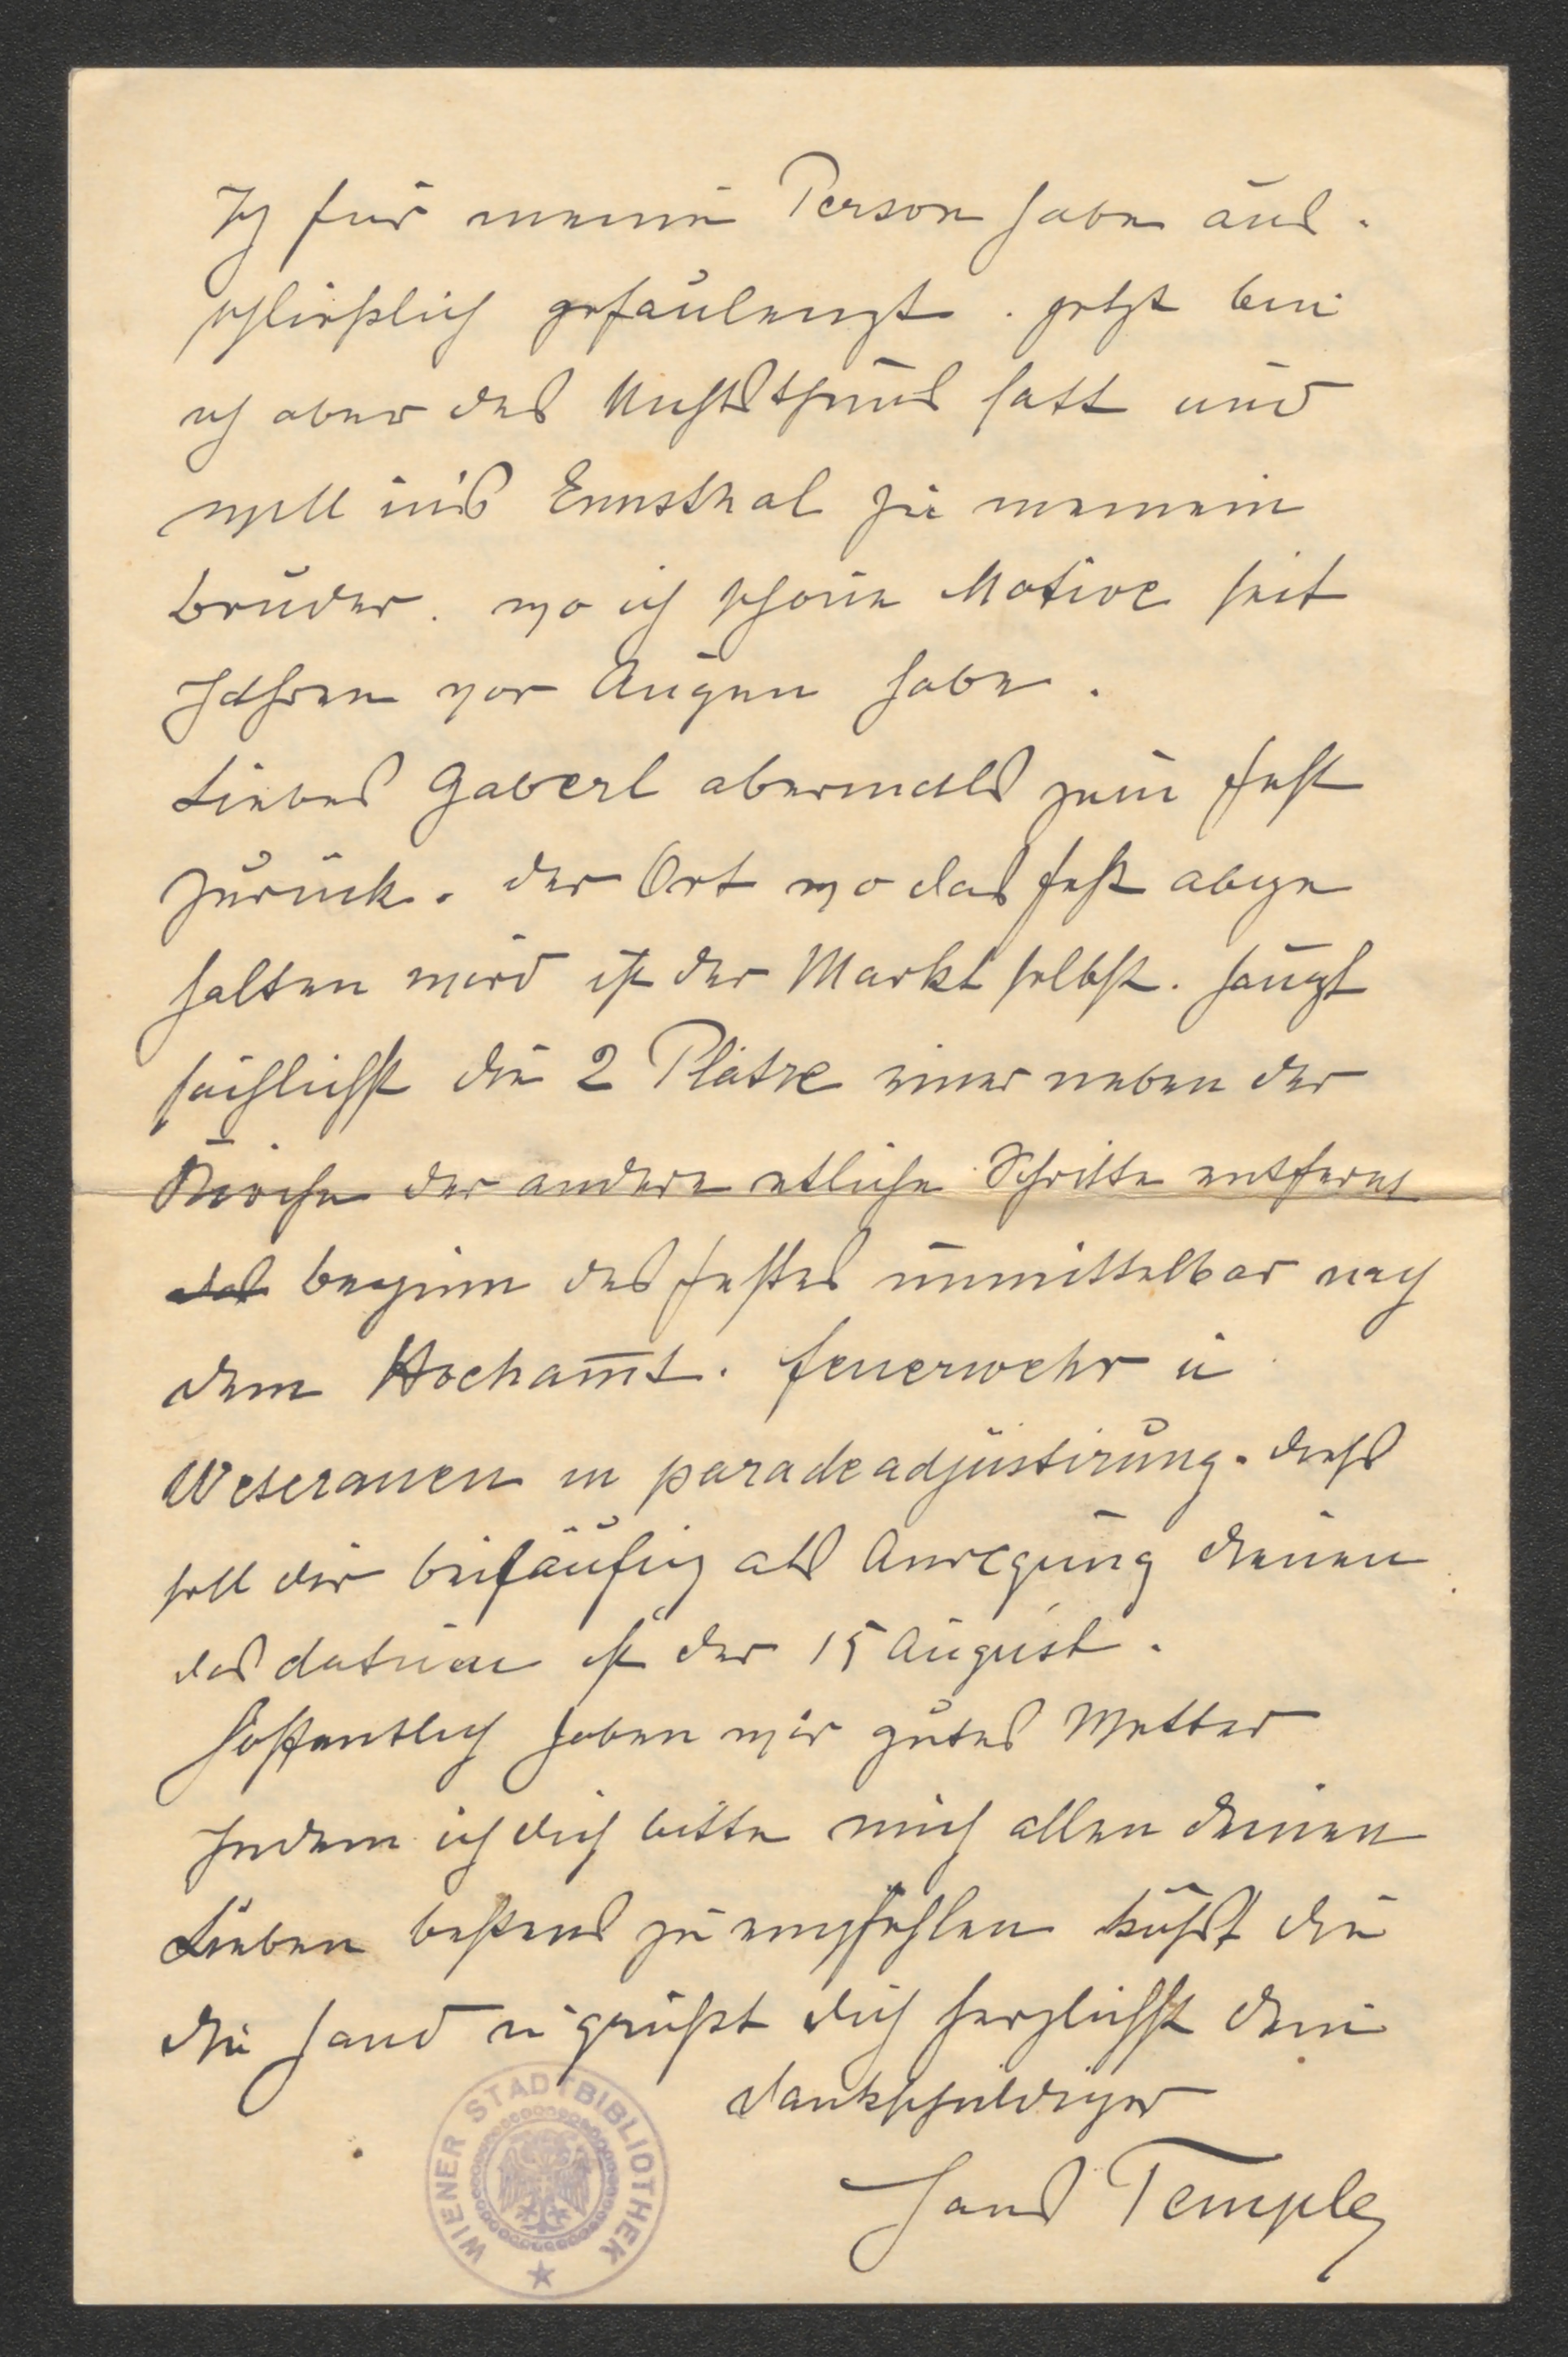 Ich für meine Person habe aus-
schließlich gefaulenzt. jetzt bin
ich aber des Nichtsthuns satt und
will ins Ennsthal zu meinem
Bruder. wo ich schöne Motive seit
Jahren vor Augen habe.
Liebes Gaberl abermals zum Fest
zurück. der Ort wo das Fest abge
halten wird ist der Markt selbst. haupt
sächlichst die 2 Plätze einer neben der
Kirche der andere etliche Schritte entfernt
das beginn des Festes unmittelbar nach
dem Hochamt. Feuerwehr u
Weteranen in paradeadjustirung. dieß
soll dir beiläufig als Anregung dienen
das datum ist der 15 August.
hoffentlich haben wir gutes Wetter
Indem ich dich bitte mich allen deinen
Lieben bestens zu empfehlen küßt dir
die Hand u grüßt dich herzlichst dein
dankschuldiger
Hans Temple
WIENER STADTBIBLIOTHEK